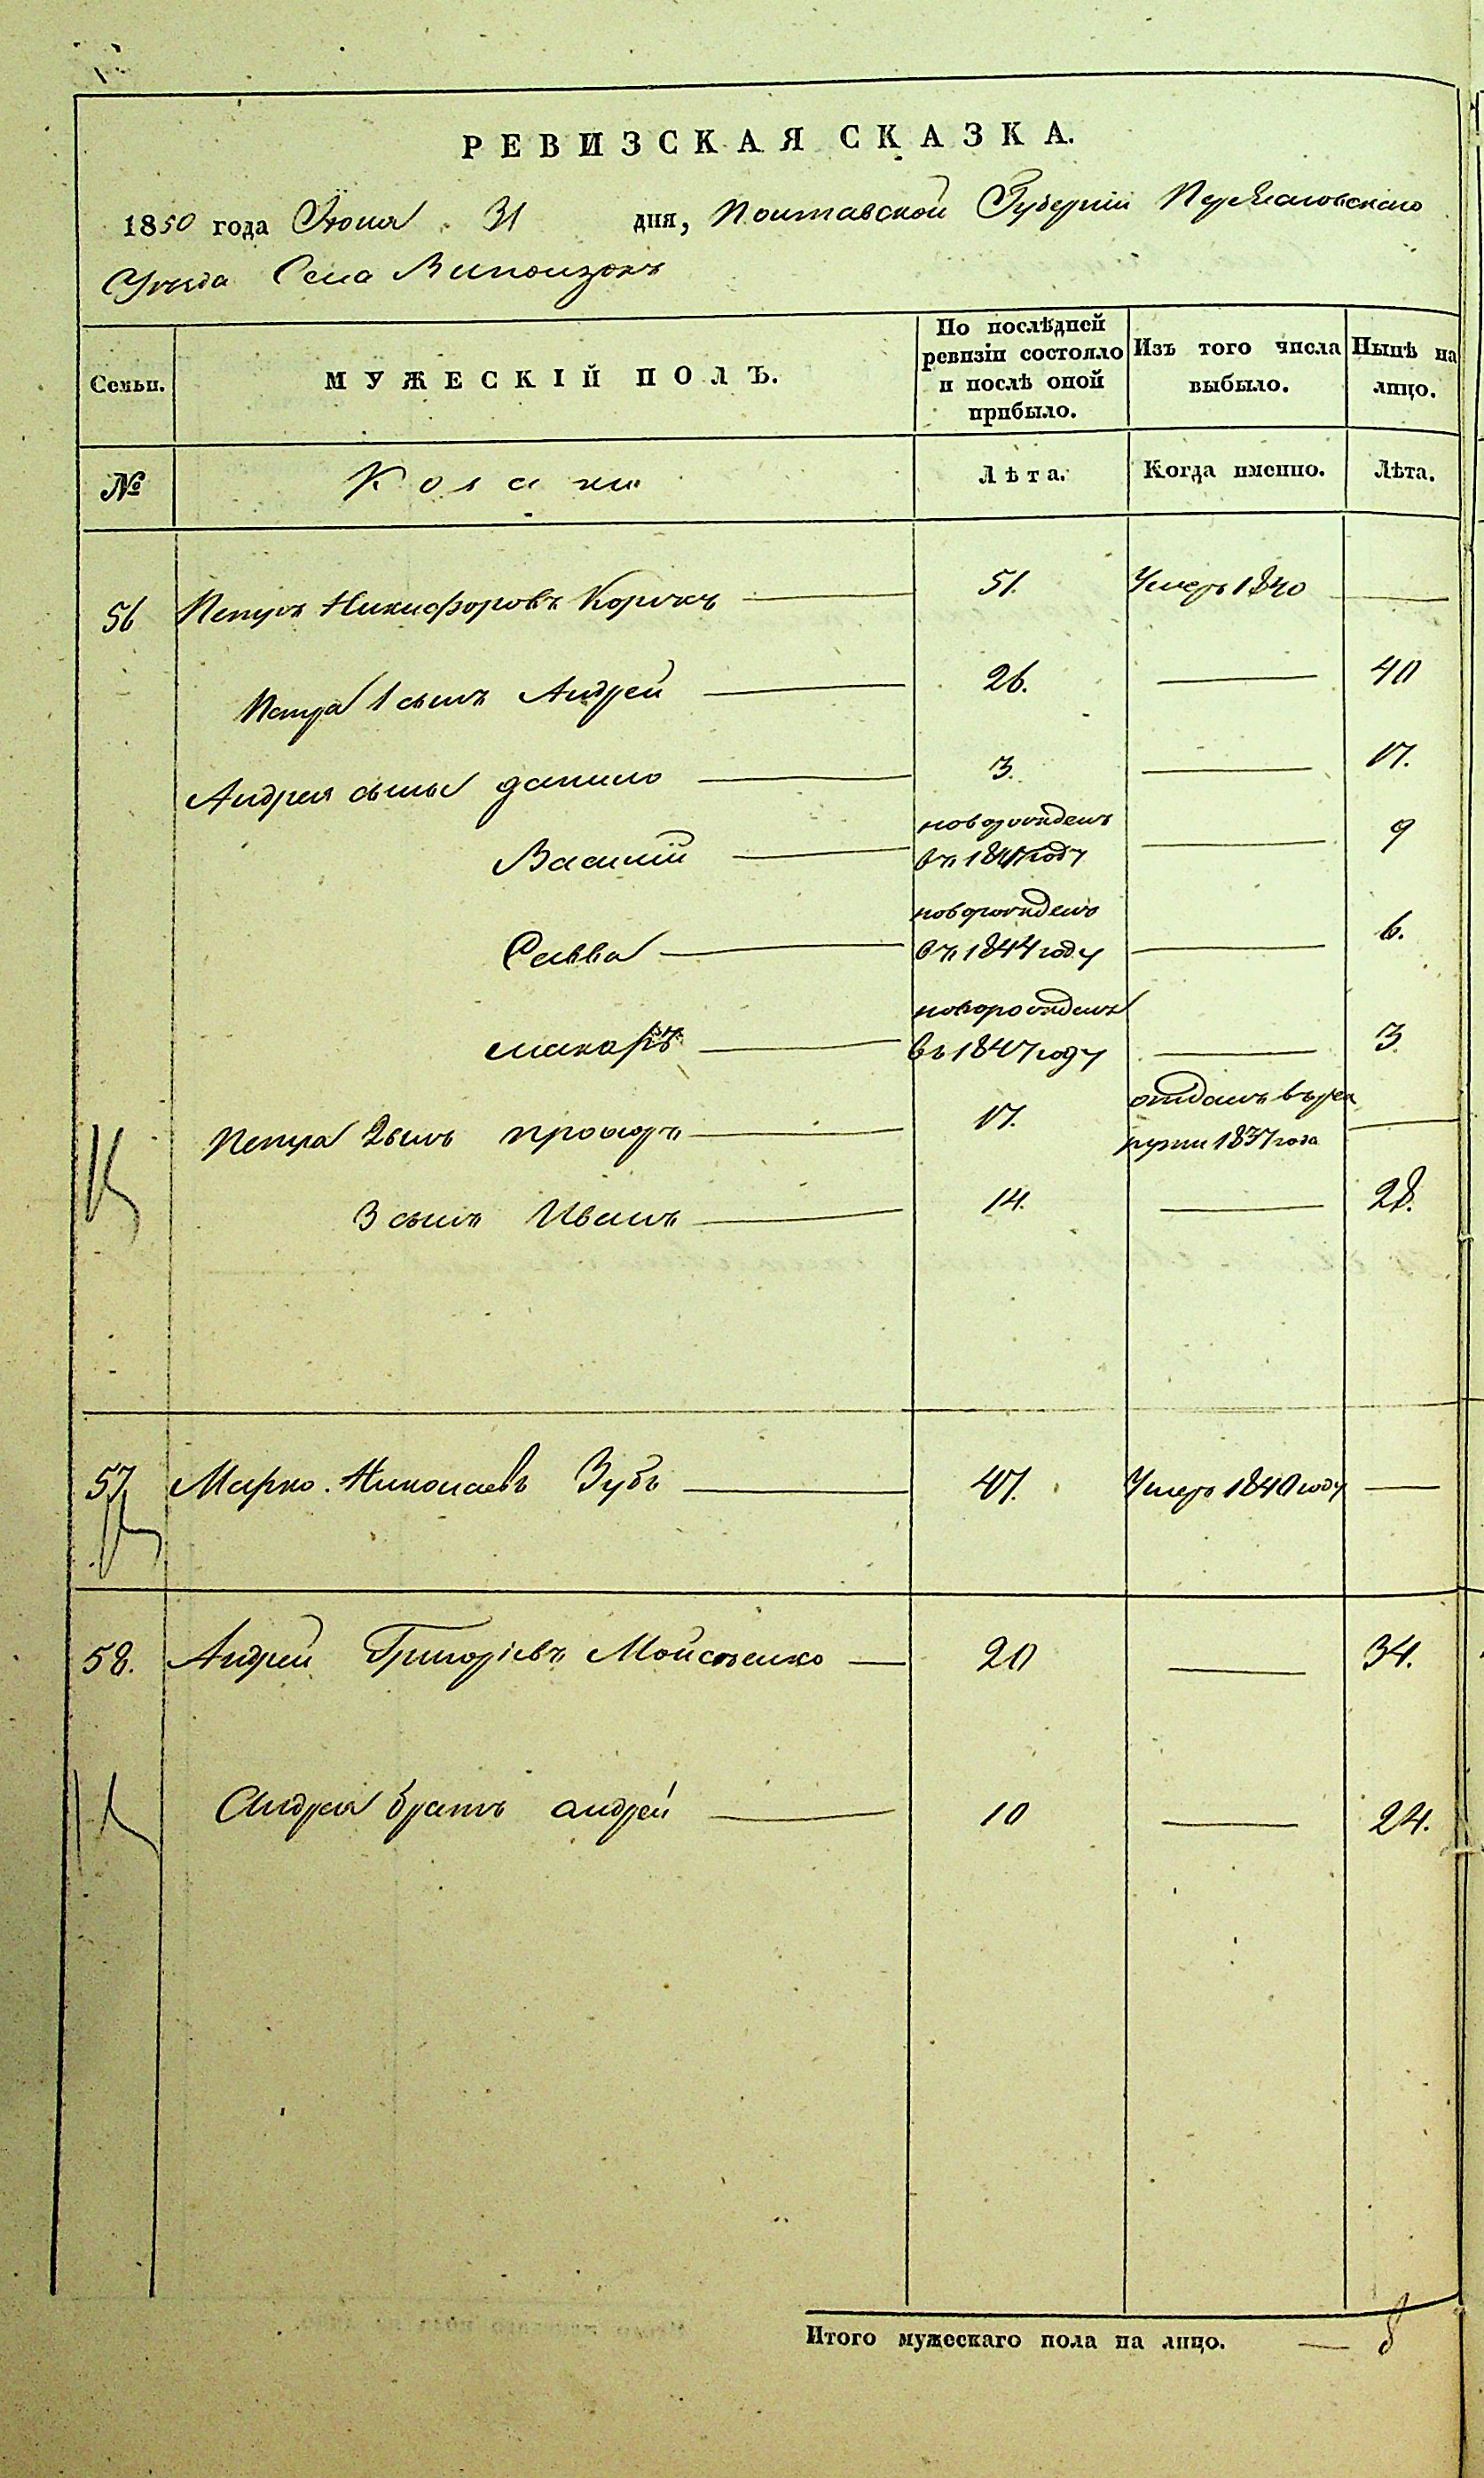 РЕВИЗСКАЯ СКАЗКА.
1850 года Июня 31 дня, Полтавской Губерніи Переяславскаго
Уѣзда Села Виползокъ
Семьи. МУЖЕСКІЙ ПОЛЪ. По послѣдней ревизіи состояло и послѣ оной прибыло. Изъ того числа выбыло. Нынѣ на лицо.
№ Козаки Лѣта. Когда именно. Лѣта.
56 Петръ Никифоровъ 51. Умеръ 1840
Петра 1 сынъ Андрей 26. 40
Андрея сыны данило 3. 17.
Василій новорожденъ въ 1841 году 9
Савва новорожденъ въ 1844 году 6.
макаръ новорожденъ въ 1847 году 3
Петра 2 сынъ прохоръ 17. отданъ въ рекруты 1837 года
3 сынъ Иванъ 14. 28.
57 Марко Николаевъ Зубъ 47. Умеръ 1840 году
58. Андрей Григоріевъ Мойсѣенко 20 34.
Андрея братъ андрей 10 24.
Итого мужескаго пола на лицо. 8